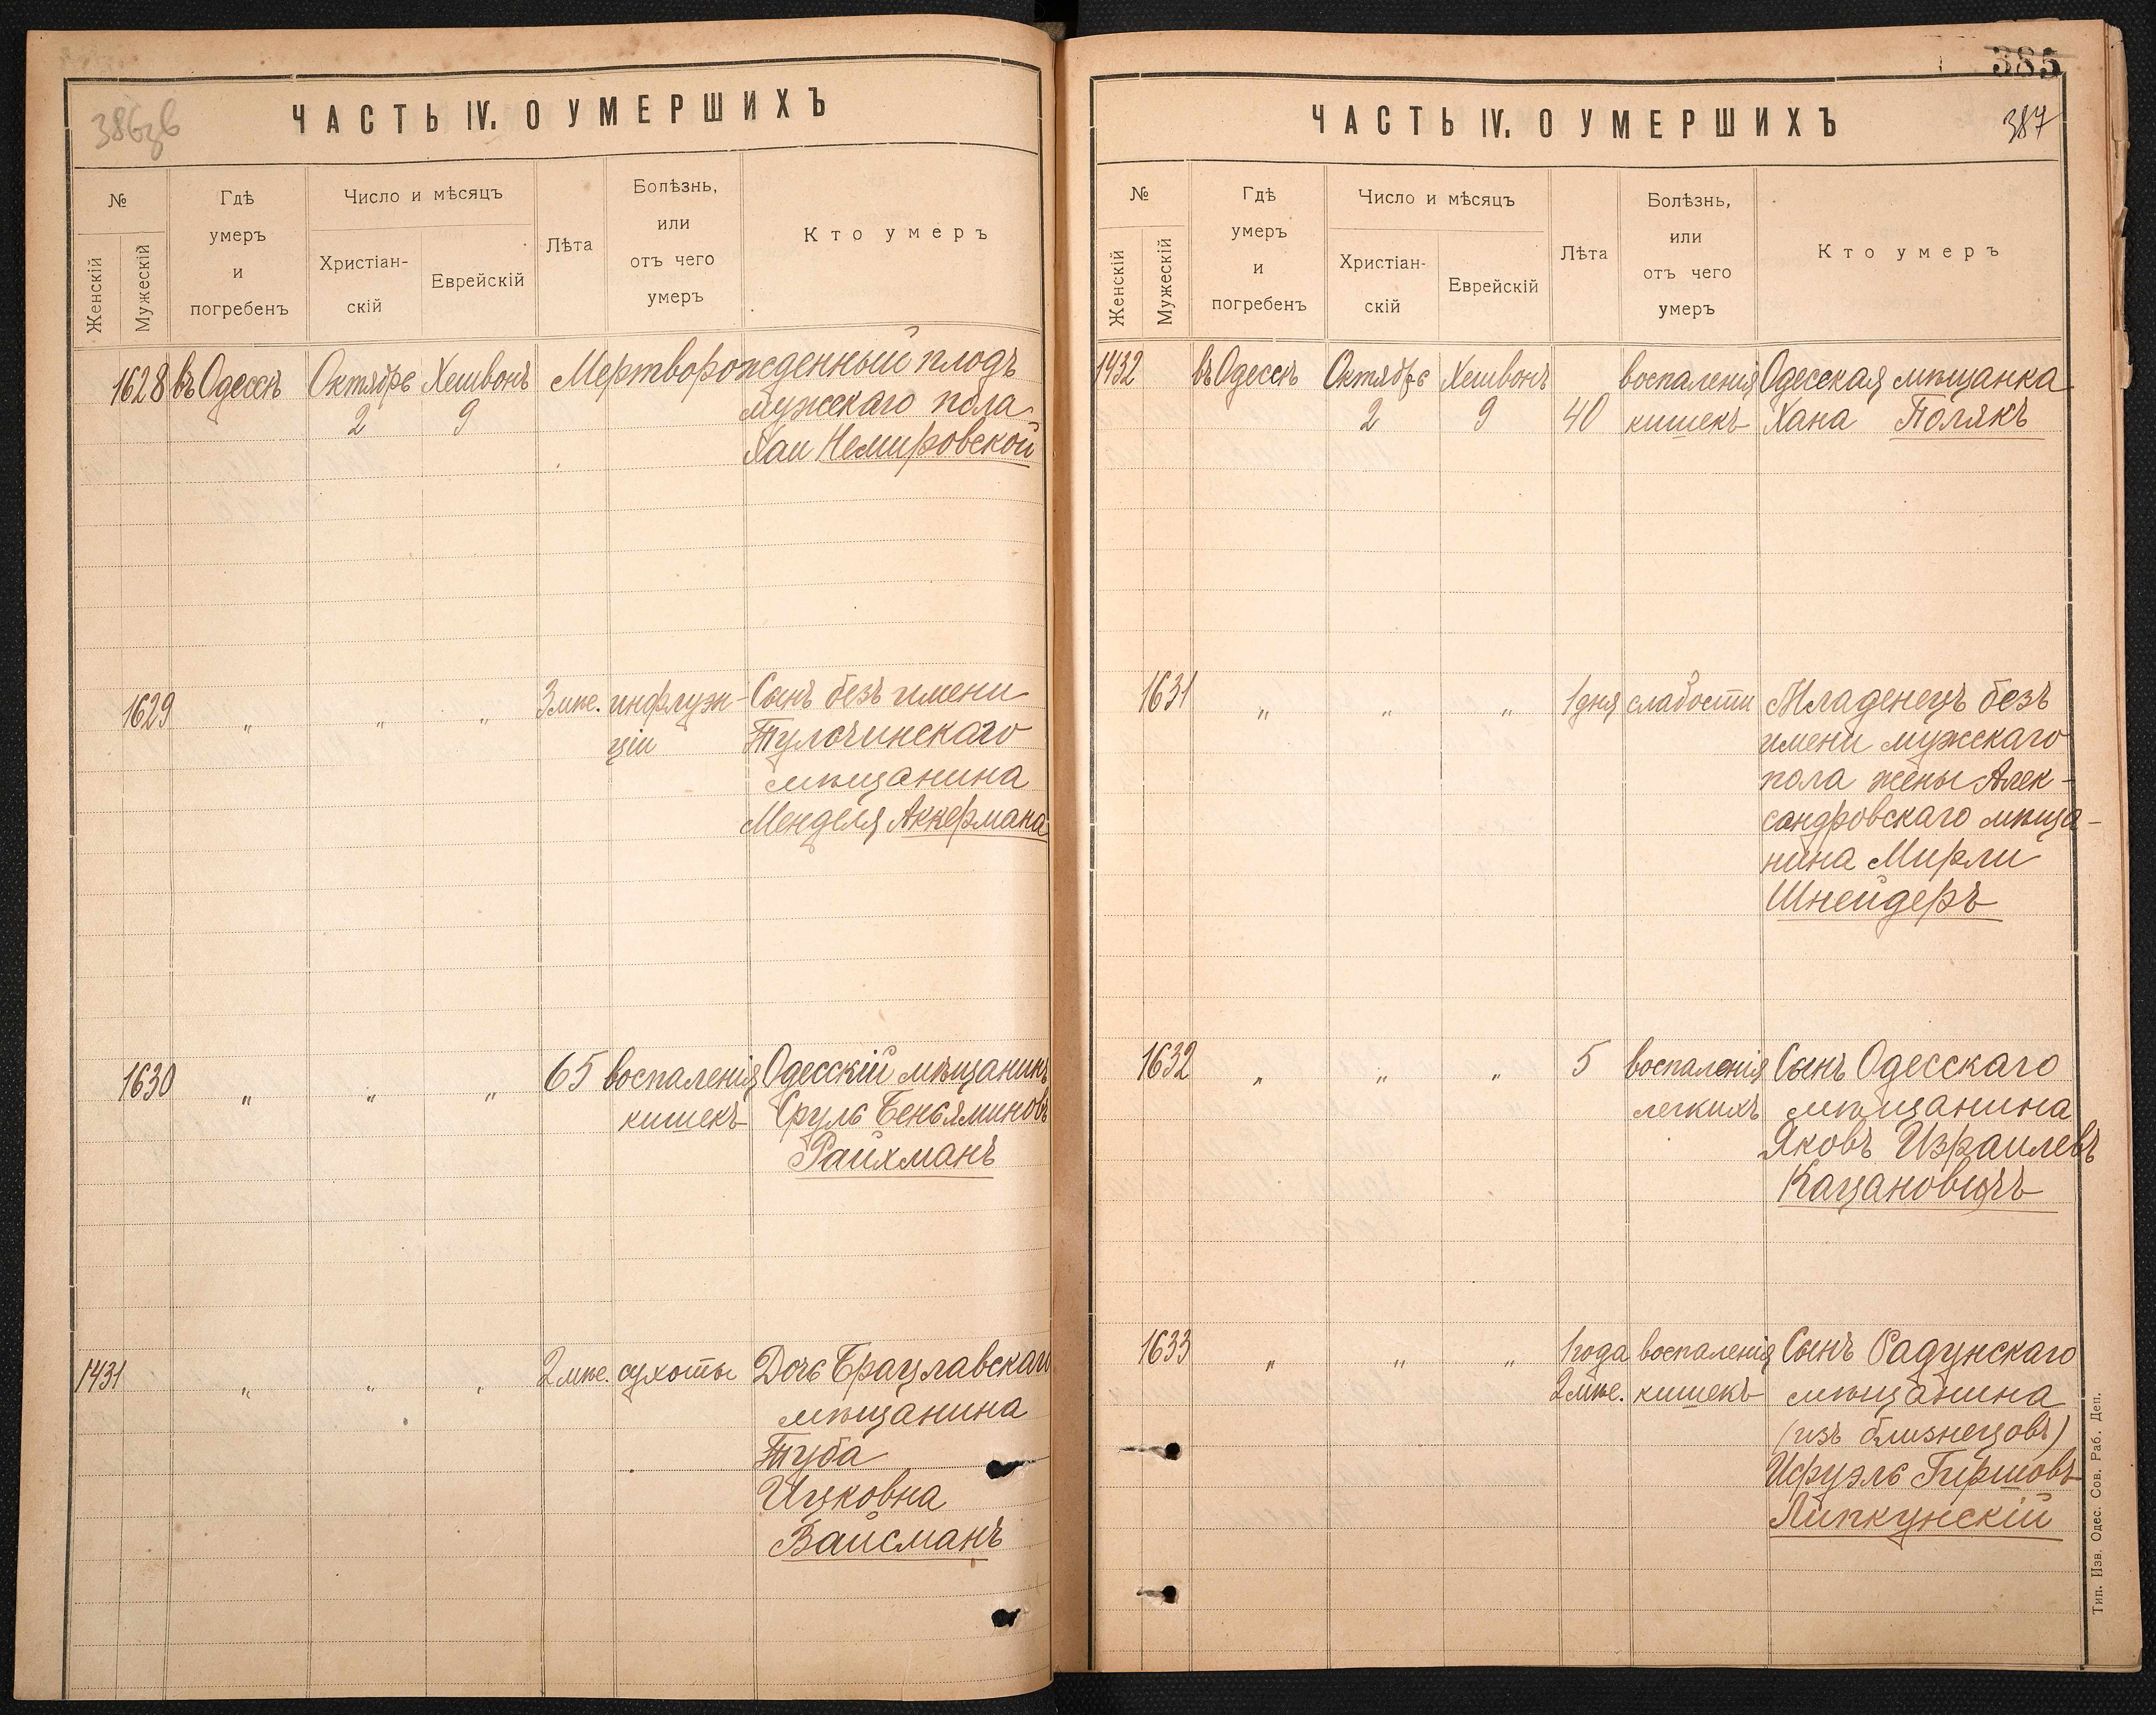 386зв
ЧАСТЬ IV. О УМЕРШИХЪ
№
Женскій
Мужескій
Гдѣ
умеръ
и
погребенъ
Число и мѣсяцъ
Христіан-
скій
Еврейскій
Лѣта
Болѣзнь,
или
отъ чего
умеръ
Кто умеръ
1628 въ Одессѣ Октябрь Хешвонъ Мертворожденный плодъ
2 9 мужскаго пола
Хаи Немировской
1629 " " " 3 мѣс. инфлуэн- Сынъ безъ имени
ціи Тульчинскаго
мѣщанина
Менделя Аккермана
1630 " " " 65 воспаленія Одесскій мѣщанинъ
кишекъ Сруль Беньяминовъ
Райхманъ
1431 " " " 2 мѣс. сухоты Дочь Брацлавскаго
мѣщанина
Туба
Ицковна
Вайсманъ
385
ЧАСТЬ IV. О УМЕРШИХЪ 387
№
Женскій
Мужескій
Гдѣ
умеръ
и
погребенъ
Число и мѣсяцъ
Христіан-
скій
Еврейскій
Лѣта
Болѣзнь,
или
отъ чего
умеръ
Кто умеръ
1432 въ Одессѣ Октябрь Хешвонъ воспаленія Одесская мѣщанка
2 9 40 кишекъ Хана Полякъ
1631 " " " 1 дня слабости Младенецъ безъ
имени мужскаго
пола жены Алек-
сандровскаго мѣща-
нина Мирли
Шнейдеръ
1632 " " " 5 воспаленія Сынъ Одесскаго
легкихъ мѣщанина
Яковъ Израилевъ
Кацановичъ
1633 " " " 1 года воспаленія Сынъ Радунскаго
2 мѣс. кишекъ мѣщанина
(изъ близнецовъ)
Исруэль Гиршовъ
Липкунскій
Тип. Изв. Одес. Сов. Раб. Деп.